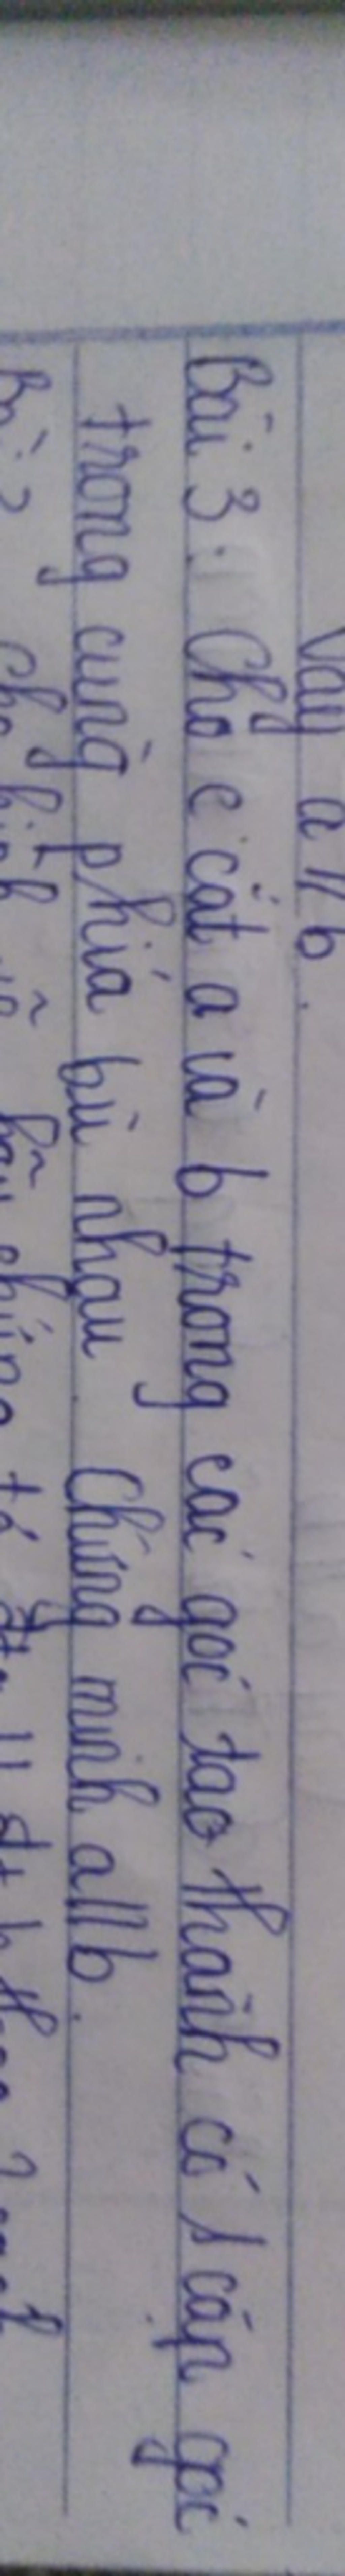 Vậy a // b.
Bài 3: Cho c cắt a và b trong các góc tạo thành có 1 cặp góc
trong cùng phía bù nhau. Chứng minh a//b.